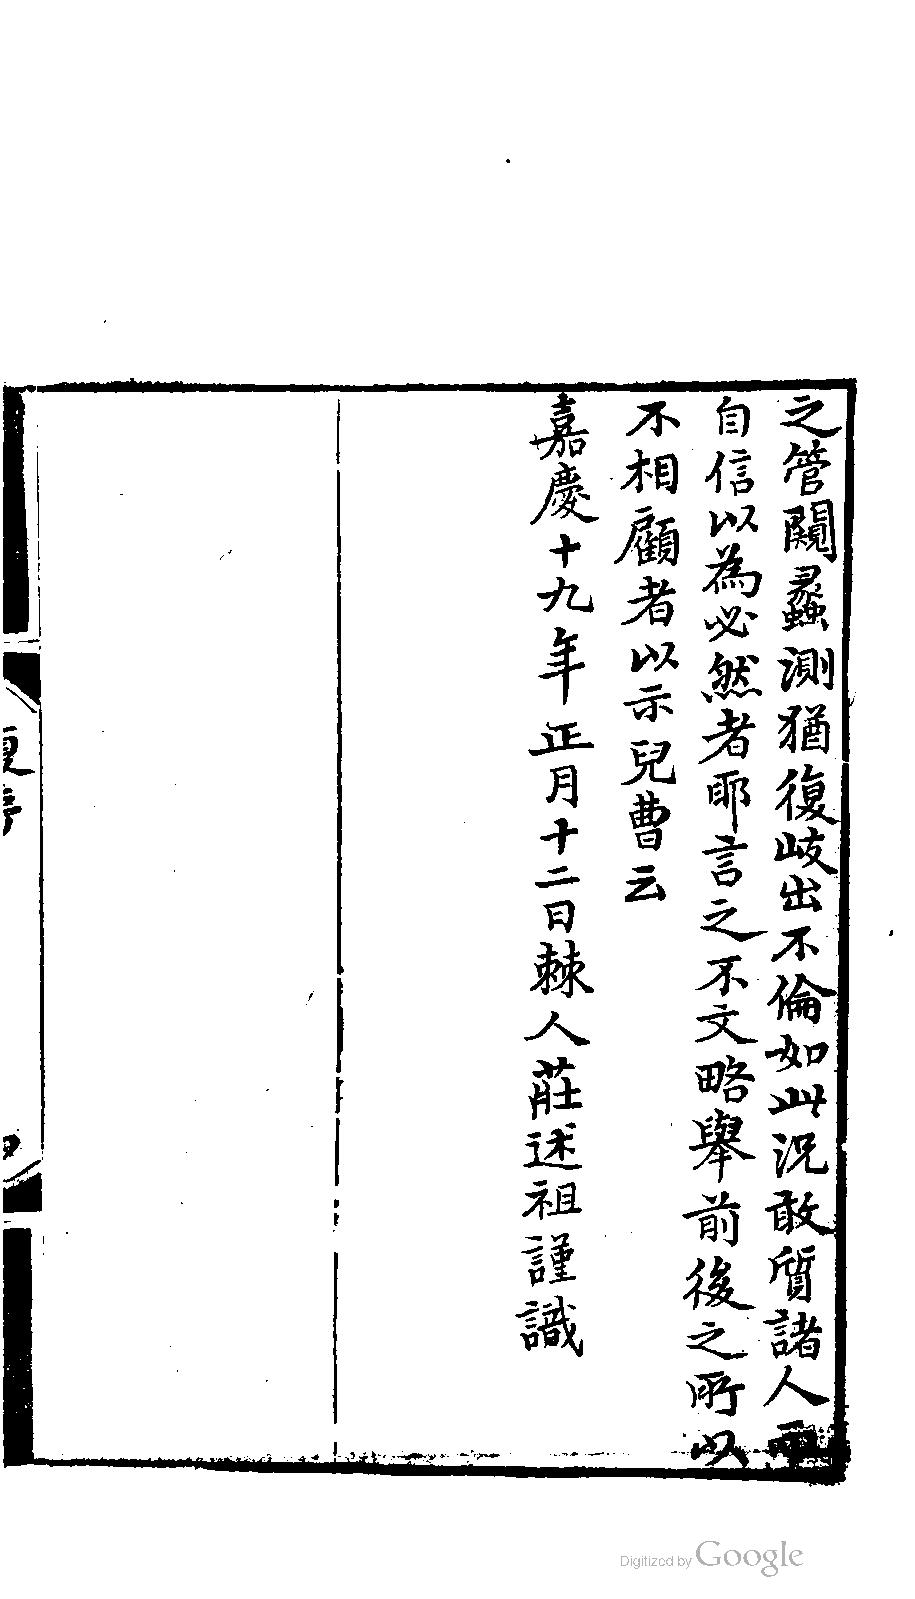 之管闚蠡測猶復歧出不倫如此況敢質諸人而
自信以為必然者耶言之不文略舉前後之所以
不相顧者以示兒曹云
嘉慶十九年正月十二日棘人莊述祖謹識
Digitized by Google